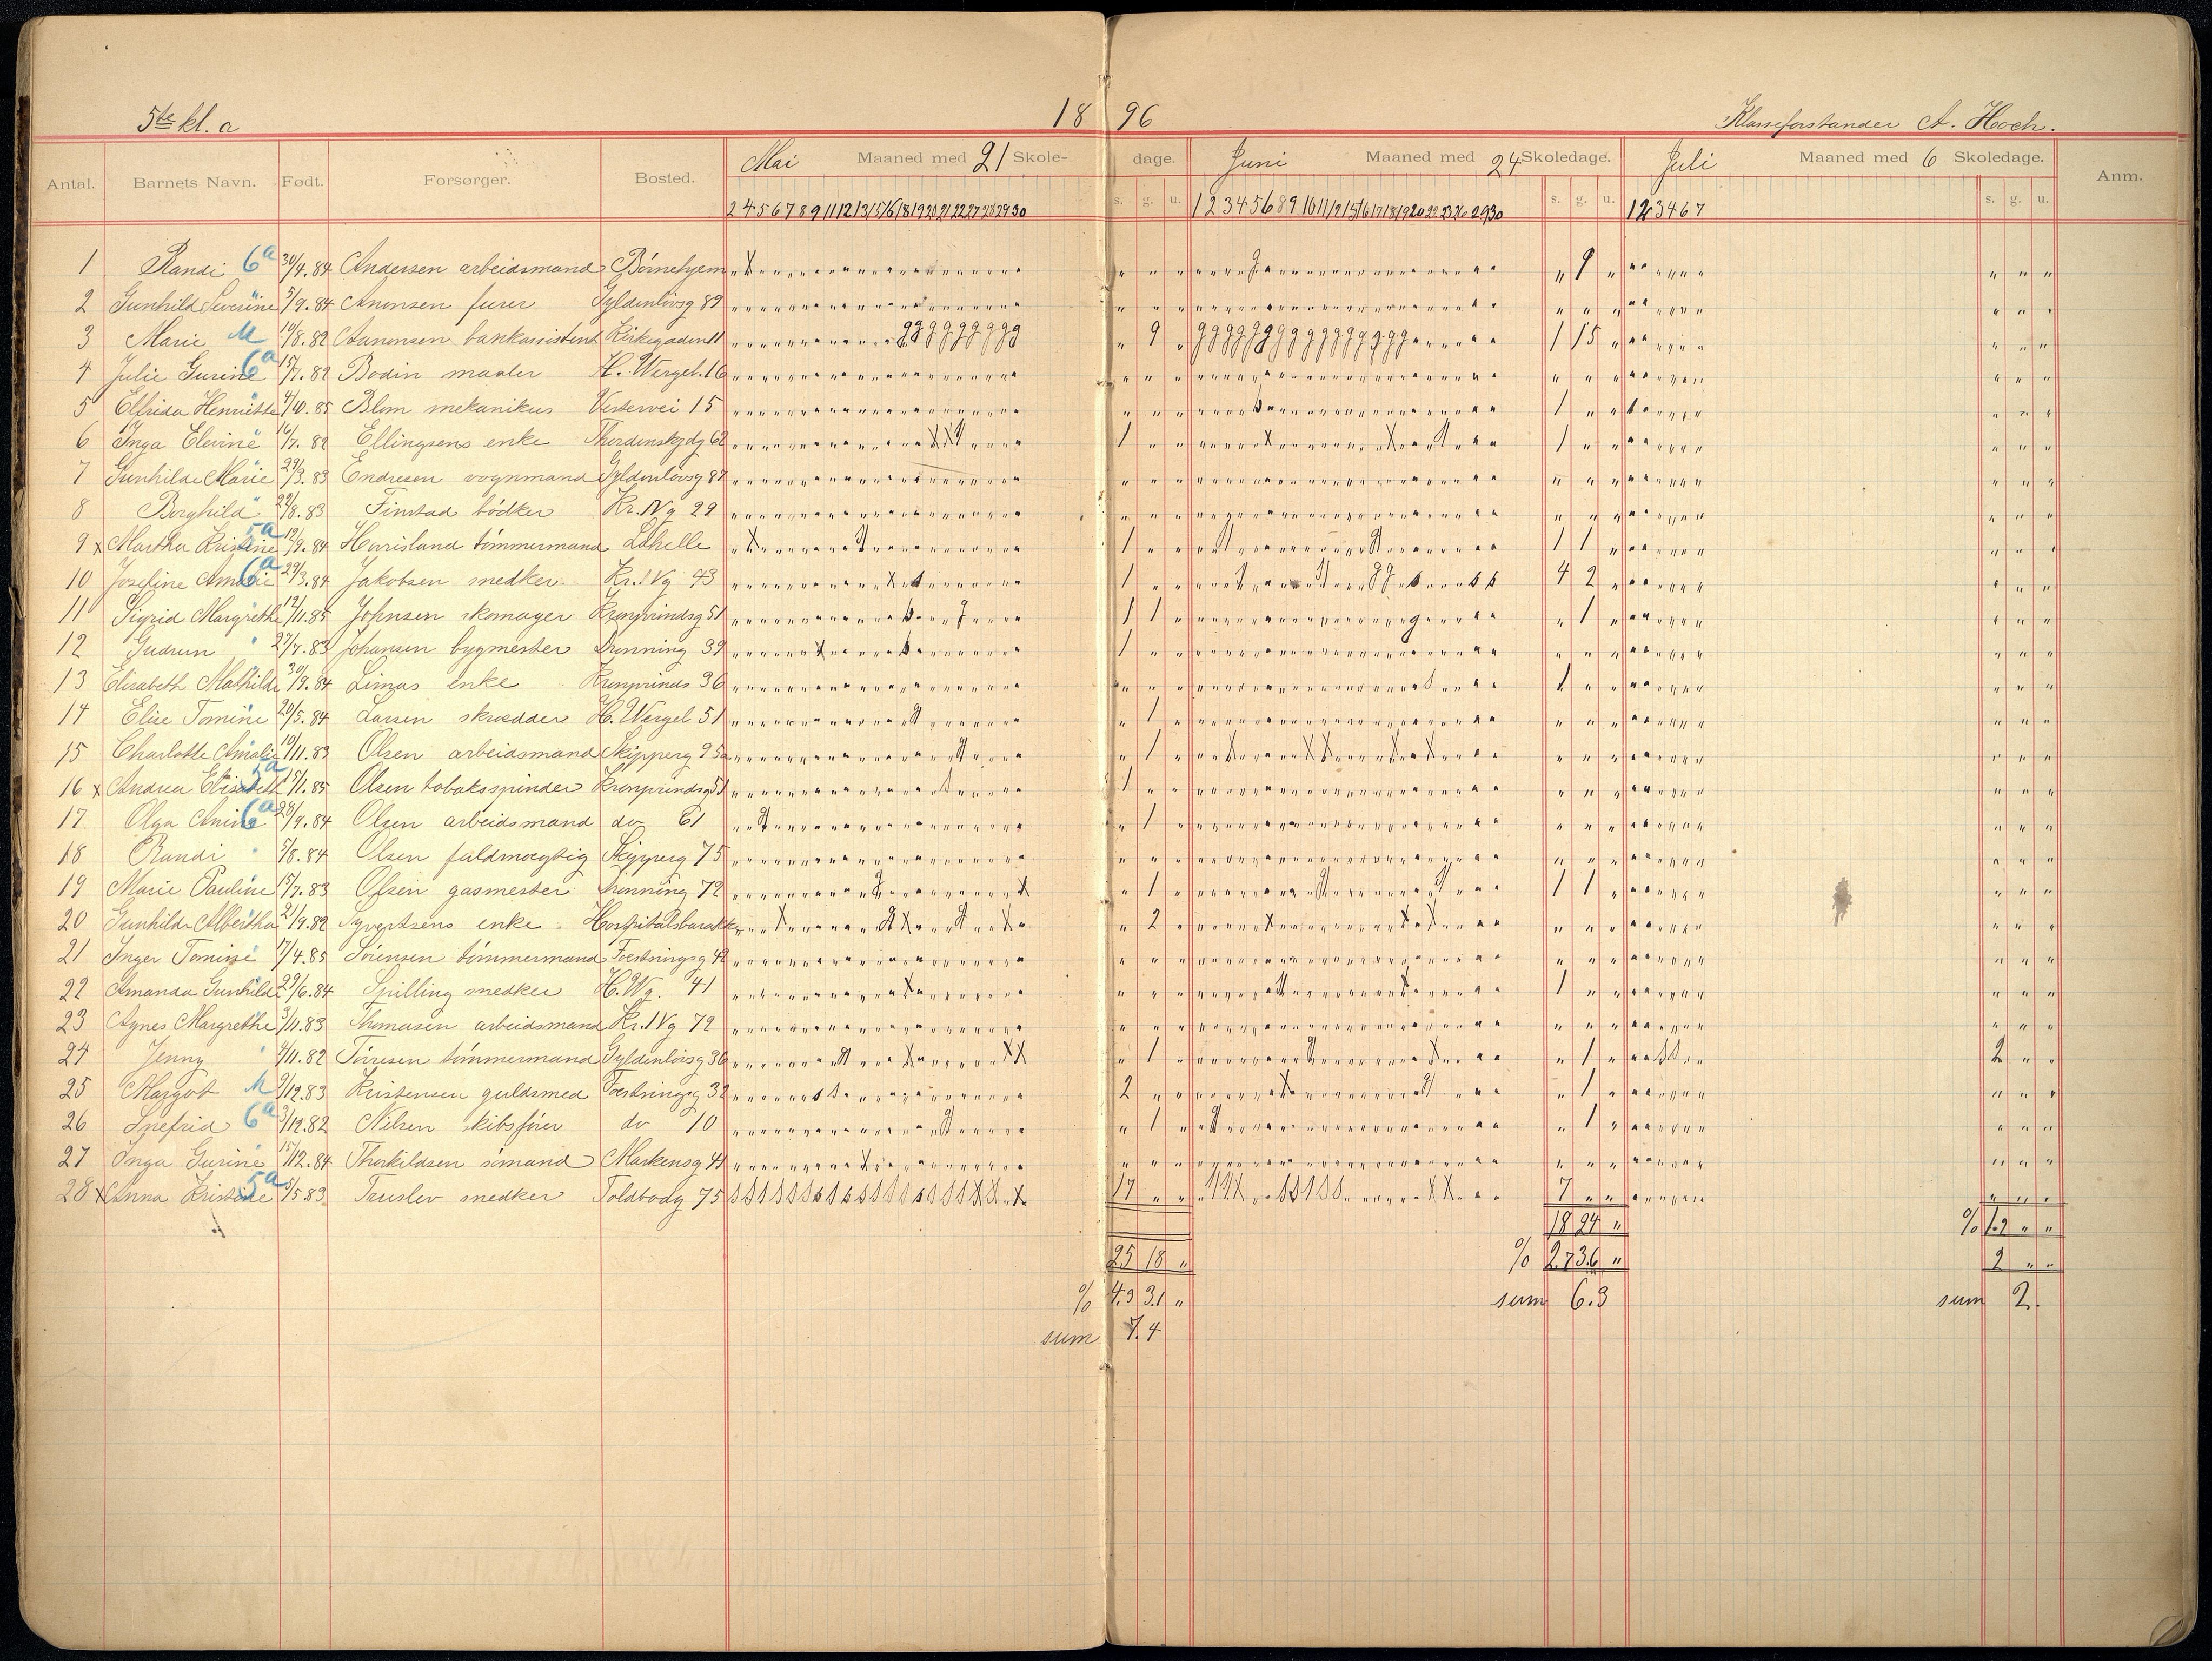 5te kl. a 18 96 Klasseforstander A. Hoch.
Antal. Barnets Navn. Født. Forsørger. Bosted. Mai Maaned med 21 Skole- dage. Juni Maaned med 24 Skoledage. Juli Maaned med 6 Skoledage. Anm.
s. g. u. s. g. u. s. g. u.
2 4 5 6 7 8 9 11 12 13 15 16 18 19 20 21 22 27 28 29 30
1 Randi 6a 30/4.84 Andersen arbeidsmand Børnehjem
2 Gunhild Severine " 5/9.84 Anonsen furer Gyldenløvsg 89
3 Marie M 19/8.82 Aanonsen bankassistent Kirkegaden 11 " 9 " 1 15 "
4 Julie Gurine 6a 15/7.82 Bodin maaler H. Wergel. 16
5 Elfrida Henriette " 4/10.85 Blom mekanikus Vestervei 15 1 " "
6 Inga Elevine " 16/7.82 Ellingsens enke Thordenskjdg 62 1 " " 1 " "
7 Gunhilde Marie " 29/3.83 Endresen vognmand Gyldenløvsg 87
8 Borghild " 22/8.83 Finstad bødker Kr. IVg 29
9 x Martha Kristine 5a 12/9.84 Horrisland tømmermand Lahelle 1 " " 1 1 "
10 Josefine Amalie 6a 29/3.84 Jakobsen snedker Kr. IVg 43 1 " " 4 2 "
11 Sigrid Margrethe " 12/11.85 Johnsen skomager Kronprindsg 51 1 1 " " 1 "
12 Gudrun " 27/7.83 Johansen bygmester Dronning 39 1 " "
13 Elisabeth Mathilde " 30/9.84 Limas enke Kronprinds 36 1 " "
14 Elise Tomine " 20/5.84 Larsen skrædder H. Wergel 51 " 1 "
15 Charlotte Amalie " 19/11.83 Olsen arbeidsmand Skipperg 95a " 1 "
16 x Andrea Elisabeth 5a 15/11.85 Olsen tobaksspinder Kronprindsg 51 1 " "
17 Olga Anine 6a 28/9.84 Olsen arbeidsmand do 61 " 1 "
18 Randi " 5/8.84 Olsen fuldmægtig Skipperg 75
19 Marie Pauline " 15/7.83 Olsen gasmester Dronning 72 " 1 " 1 1 "
20 Gunhilde Albertha " 21/9.82 Syvertsens enke Hospitalsbarakke " 2 "
21 Inger Tomine " 17/4.85 Sørensen tømmermand Foestningsg 42
22 Amanda Gunhilde " 29/6.84 Spilling snedker H. Wg. 41 1 " "
23 Agnes Margrethe " 3/11.83 Thomasen arbeidsmand Kr. IVg 72
24 Jenny " 4/11.82 Tørresen tømmermand Gyldenløvsg 36 " 1 " " 1 " 2 " "
25 Margot M 9/12.83 Kristensen guldsmed Foestningsg 32 2 " " " 1 "
26 Snefrid 6a 3/12.82 Nilsen skibsfører do 10 " 1 " " 1 "
27 Inga Gurine " 15/12.84 Thorkildsen sømand Markensg 41
28 x Anna Kristine 5a 5/5.83 Truslev snedker Toldbodg 75 17 " " 7 " "
18 24 " % 1.2 " "
25 18 " % 2.7 3.6 " 2 " "
% 4.3 3.1 " sum 6.3 sum 2.
sum 7.4